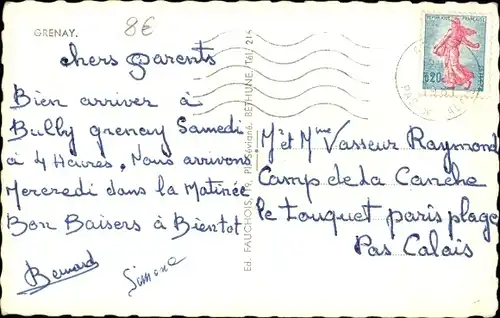 GRENAY.
8€
chers parents
Bien arriver à
Bully grenay Samedi
à 4 Heures, Nous arrivons
Mercredi dans la Matinée
Bon Baisers à Bientot
Bernard
Simone
Ed. FAUCHOIS, BETHUNE. Tél. 214
REPUBLIQUE FRANÇAISE
0,20
Mr et Mme Vasseur Raymond
Camp de La Canche
le touquet paris plage
Pas Calais